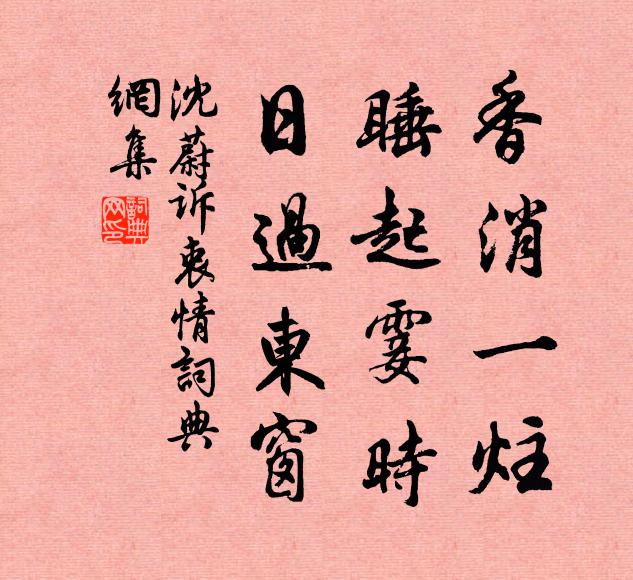 香消一炷
睡起霎時
日過東窗
沈蔚訴衷情詞典
網集
詞典
网印